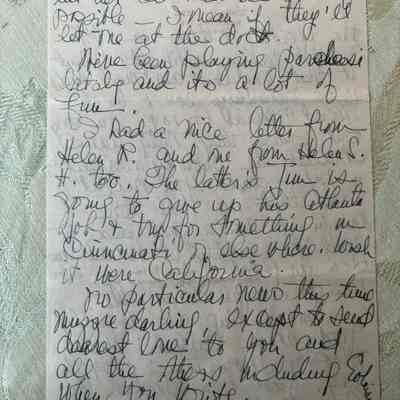 possible – I mean if they'll
let me at the dock.
We've been playing parcheesi
lately and its a lot of
fun.
I had a nice letter from
Helen R. and one from Helen S.
H. too. The latter's Jim is
going to give up his Atlanta
job & try for something in
Cincinnati or else where. Wish
it were California.
No particular news this time
darling, except to send
dearest love to you and
all the others including
when you write.